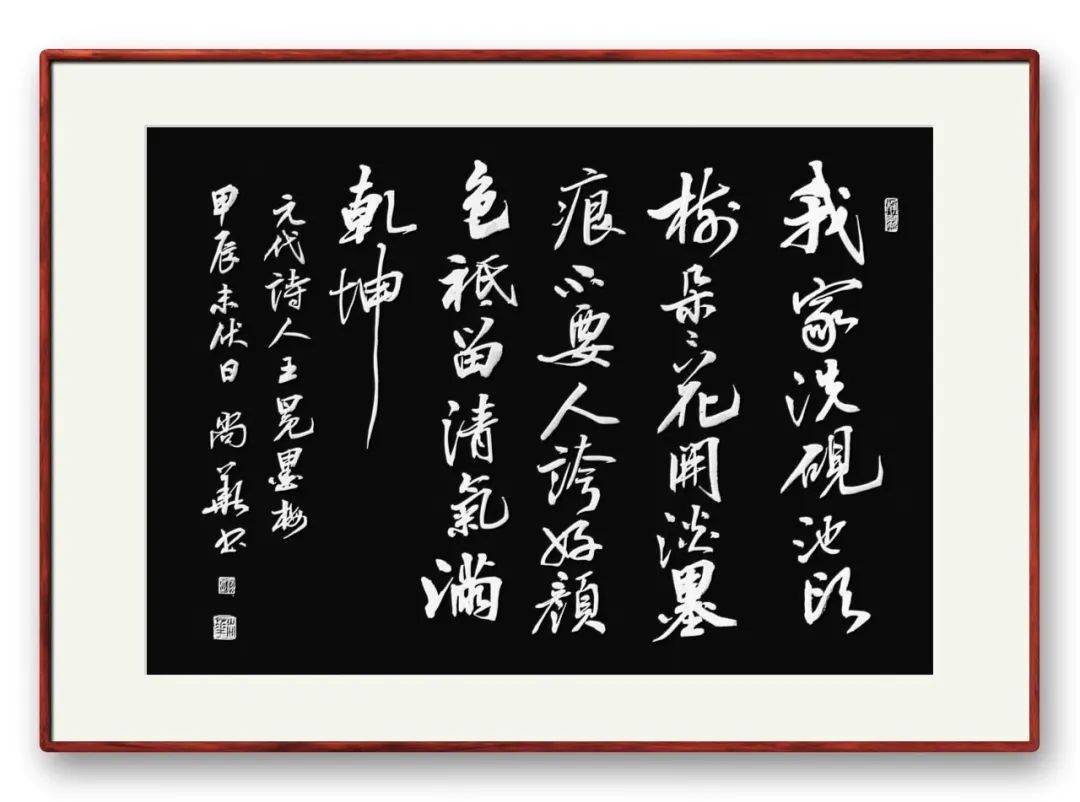 我家洗硯池頭
樹朵〻花開淡墨
痕不要人誇好顏
色祗留清氣滿
乾坤
元代詩人王冕墨梅
甲辰末伏日尚華書